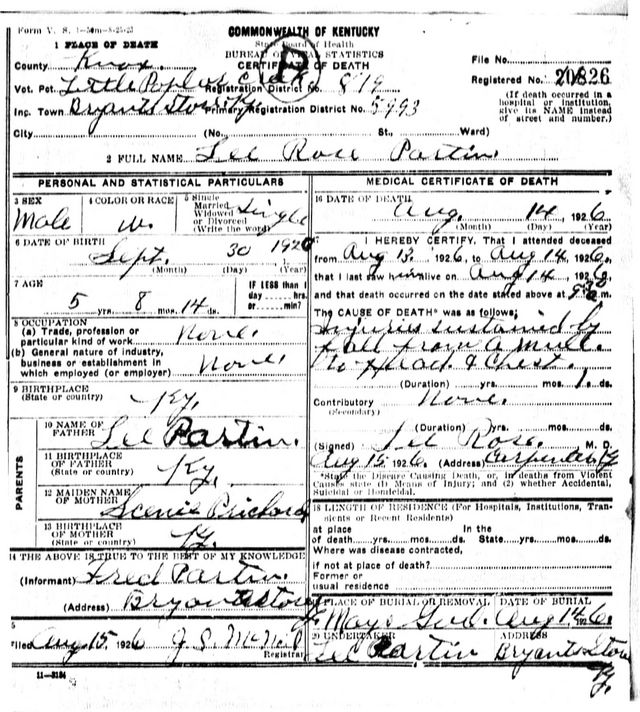 Form V. S. 1-50m-8-25-25
COMMONWEALTH OF KENTUCKY
State Board of Health
BUREAU OF VITAL STATISTICS
CERTIFICATE OF DEATH
1 PLACE OF DEATH
County Knox.
File No.
Vot. Pct. Little Poplar Creek Registration District No. 819
Registered No. 20826
Inc. Town Bryants Store Ky. Primary Registration District No. 5993
(If death occurred in a hospital or institution, give its NAME instead of street and number.)
City (No. St., Ward)
2 FULL NAME Lee Rose Partin
PERSONAL AND STATISTICAL PARTICULARS
3 SEX Male
4 COLOR OR RACE W.
5 Single Married Widowed or Divorced (Write the word) Single
6 DATE OF BIRTH Sept. 30 1920
(Month) (Day) (Year)
7 AGE 5 yrs. 8 mos. 14 ds.
IF LESS than 1 day hrs. or min?
8 OCCUPATION
(a) Trade, profession or particular kind of work None.
(b) General nature of industry, business or establishment in which employed (or employer) None.
9 BIRTHPLACE
(State or country) Ky.
PARENTS
10 NAME OF FATHER Lee Partin.
11 BIRTHPLACE OF FATHER
(State or country) Ky.
12 MAIDEN NAME OF MOTHER Prichard
13 BIRTHPLACE OF MOTHER
(State or country) Ky.
14 THE ABOVE IS TRUE TO THE BEST OF MY KNOWLEDGE
(Informant) Fred Partin.
(Address) Bryants Store Ky.
Filed Aug 15 1926 J. S. McNeil
Registrar
11-3184
MEDICAL CERTIFICATE OF DEATH
16 DATE OF DEATH Aug. 14, 1926
(Month) (Day) (Year)
I HEREBY CERTIFY, That I attended deceased
from Aug 13, 1926, to Aug 14, 1926,
that I last saw him alive on Aug 14, 1926,
and that death occurred on the date stated above at m.
The CAUSE OF DEATH* was as follows;
Injuries sustained by
fall from a mule.
To Head. & Chest.
(Duration) yrs. mos. 1 ds.
Contributory None.
(Secondary)
(Duration) yrs. mos. ds.
(Signed) Lee Rose. M. D.
Aug 15 1926. (Address) Carpenter Ky
*State the Disease Causing Death, or, in deaths from Violent Causes state (1) Means of Injury; and (2) whether Accidental, Suicidal or Homicidal.
18 LENGTH OF RESIDENCE (For Hospitals, Institutions, Transients or Recent Residents)
at place of death yrs. mos. ds. In the State yrs. mos. ds.
Where was disease contracted,
if not at place of death?
Former or
usual residence
PLACE OF BURIAL OR REMOVAL DATE OF BURIAL
Aug 14 1926.
20 UNDERTAKER ADDRESS
Lee Partin Bryants Store
Ky.